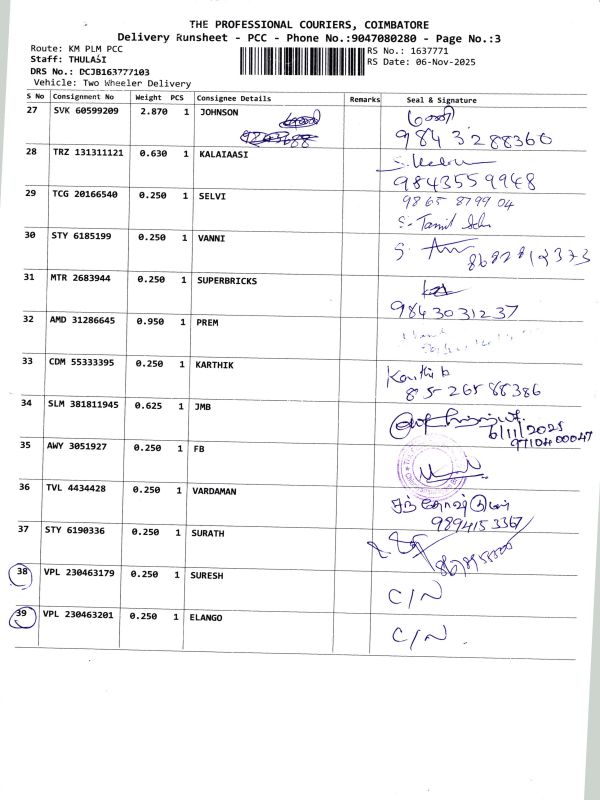 THE PROFESSIONAL COURIERS, COIMBATORE
Delivery Runsheet - PCC - Phone No.:9047080280 - Page No.:3
Route: KM PLM PCC
RS No.: 1637771
Staff: THULASI
RS Date: 06-Nov-2025
DRS No.: DCJB163777103
Vehicle: Two Wheeler Delivery
S No Consignment No Weight PCS Consignee Details Remarks Seal & Signature
27 SVK 60599209 2.870 1 JOHNSON மணி
9843288360
28 TRZ 131311121 0.630 1 KALAIAASI
9843559948
29 TCG 20166540 0.250 1 SELVI 9865 8799 04
S. Tamil Selvi
30 STY 6185199 0.250 1 VANNI
31 MTR 2683944 0.250 1 SUPERBRICKS
9843031237
32 AMD 31286645 0.950 1 PREM
33 CDM 55333395 0.250 1 KARTHIK Karthi b
8526588386
34 SLM 381811945 0.625 1 JMB
6/11/2025
9710400047
35 AWY 3051927 0.250 1 FB
36 TVL 4434428 0.250 1 VARDAMAN
9894153367
37 STY 6190336 0.250 1 SURATH
38 VPL 230463179 0.250 1 SURESH C/N
39 VPL 230463201 0.250 1 ELANGO C/N